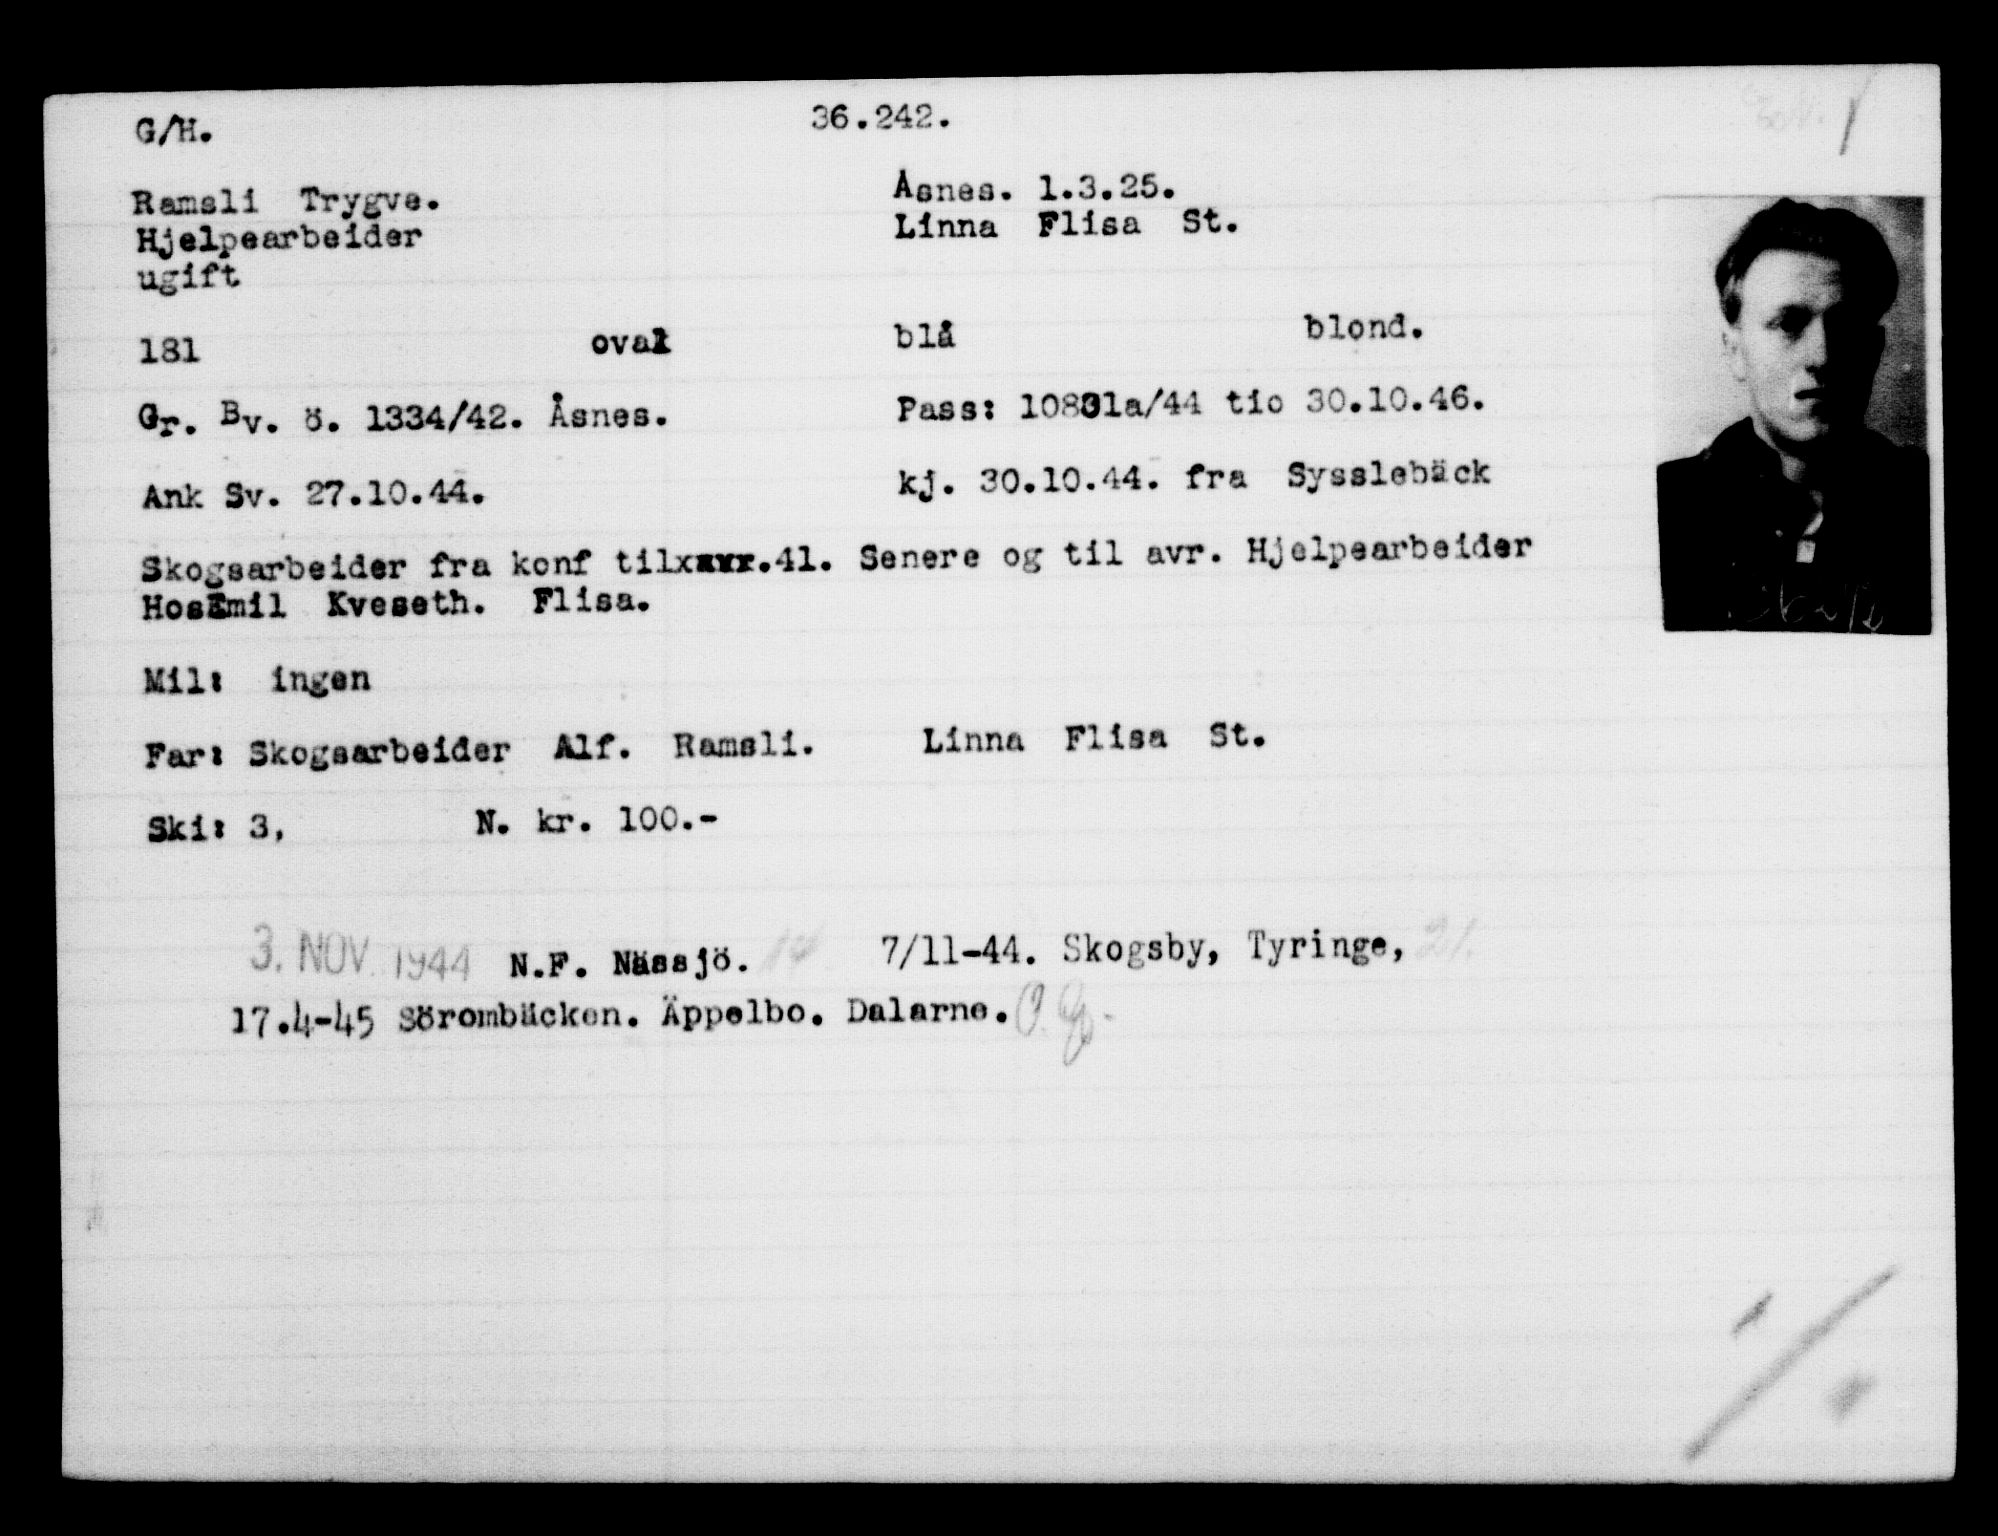 G/H. 36.242.
Ramsli Trygve. Åsnes. 1.3.25.
Hjelpearbeider Linna Flisa St.
ugift
181 oval blå blond.
Gr. Bv. ö. 1334/42. Åsnes. Pass: 10801a/44 tio 30.10.46.
Ank Sv. 27.10.44. kj. 30.10.44. fra Sysslebäck
Skogsarbeider fra konf til .41. Senere og til avr. Hjelpearbeider
HosEmil Kveseth. Flisa.
Mil: ingen
Far: Skogsarbeider Alf. Ramsli. Linna Flisa St.
Ski: 3, N. kr. 100.-
3. NOV. 1944 N.F. Nässjö. 14 7/11-44. Skogsby, Tyringe, 21.
17.4-45 Sörombäcken. Äppelbo. Dalarne.